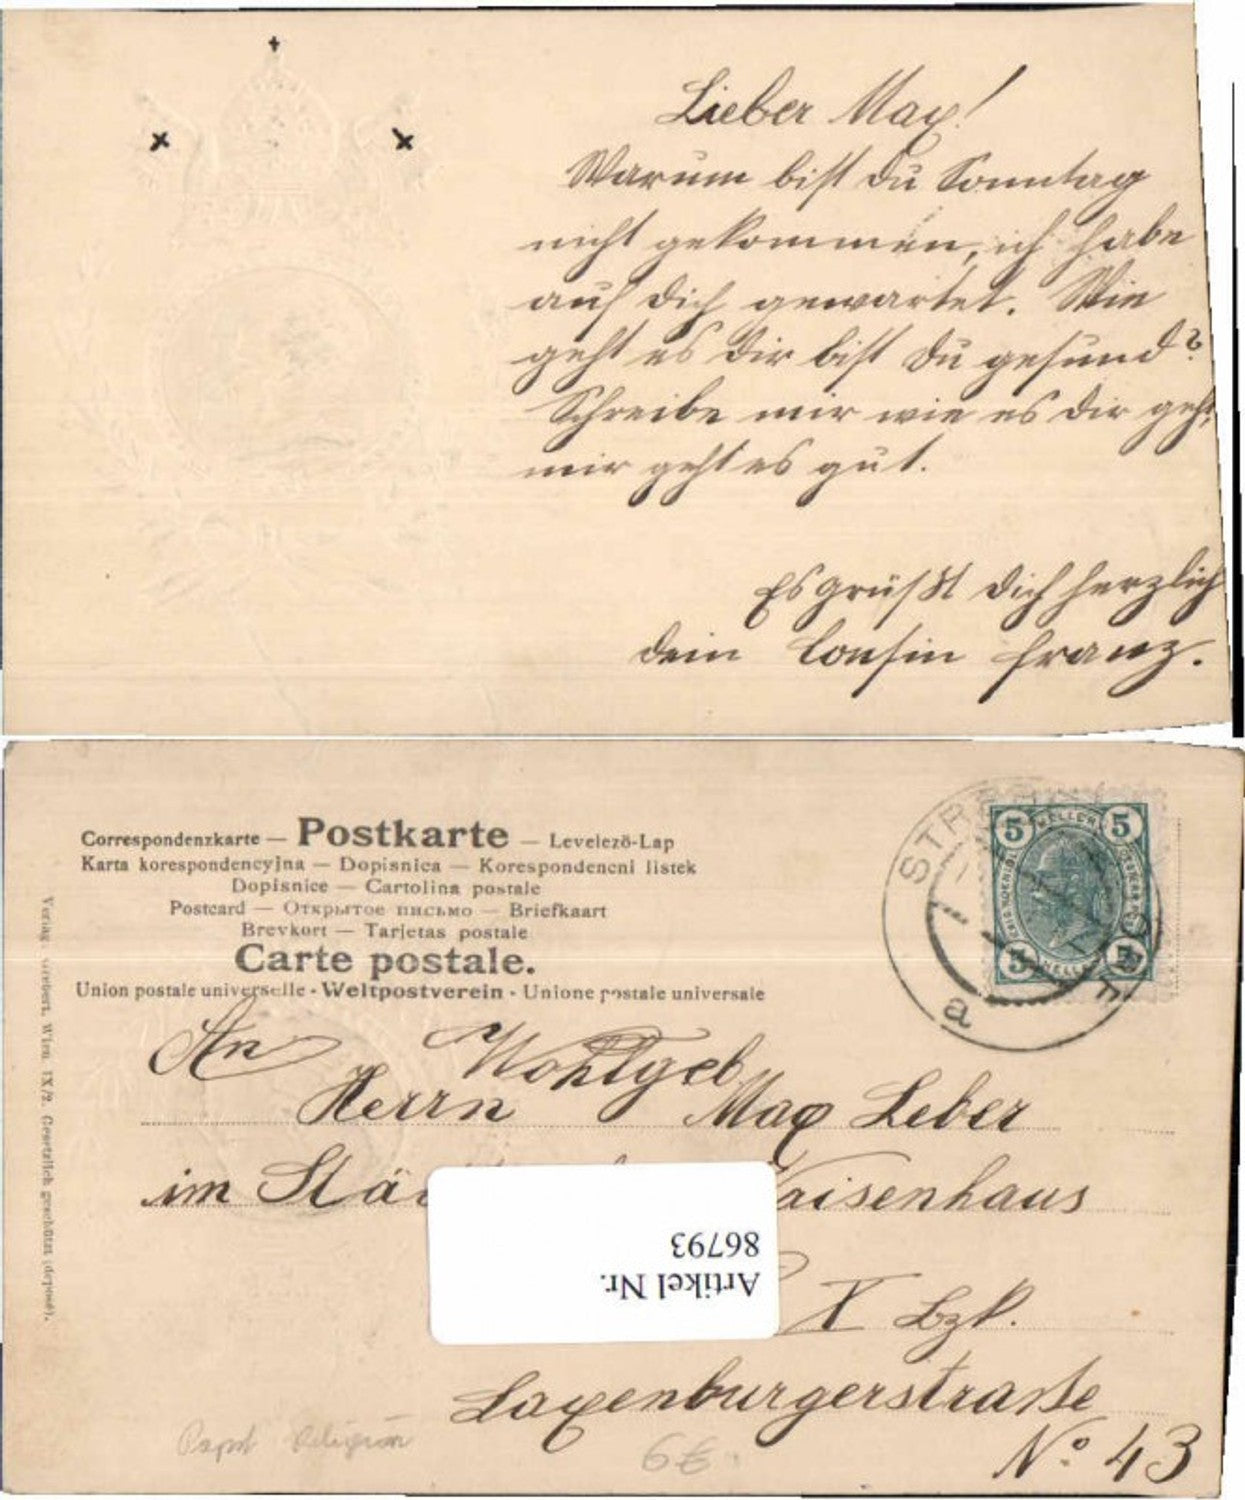 Lieber Max!
Warum bist du Sonntag
nicht gekommen, ich habe
auf dich gewartet. Wie
geht es dir bist du gesund?
Schreibe mir wie es dir geht,
mir geht es gut.
Es grüßt dich herzlich
dein Cousin Franz.
Correspondenzkarte — Postkarte — Levelező-Lap
Karta korespondencyjna — Dopisnica — Korespondencni listek
Dopisnice — Cartolina postale
Postcard — Открытое письмо — Briefkaart
Brevkort — Tarjetas postale
Carte postale.
Union postale universelle - Weltpostverein - Unione postale universale
5 HELLER 5
5 HELLER 5
a
An Wohlgeb
Herrn Max Leber
im Waisenhaus
X Bzk.
Laxenburgerstraße
No 43
Artikel Nr.
86793
Verlag Wien. IX/2. Gesetzlich geschützt (deposé).
Papst Religion
6€